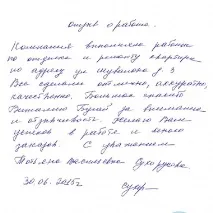 отзыв о работе.
Компания выполнила работы
по отделке и ремонту квартиры
по адресу ул Шувалова д. 3
Все сделали отлично, аккуратно,
качественно. Большое спасибо
Виталию за внимание
и отзывчивость. Желаю Вам
успехов в работе и много
заказов. С уважением
Татьяна Васильевна
30.06.2015г